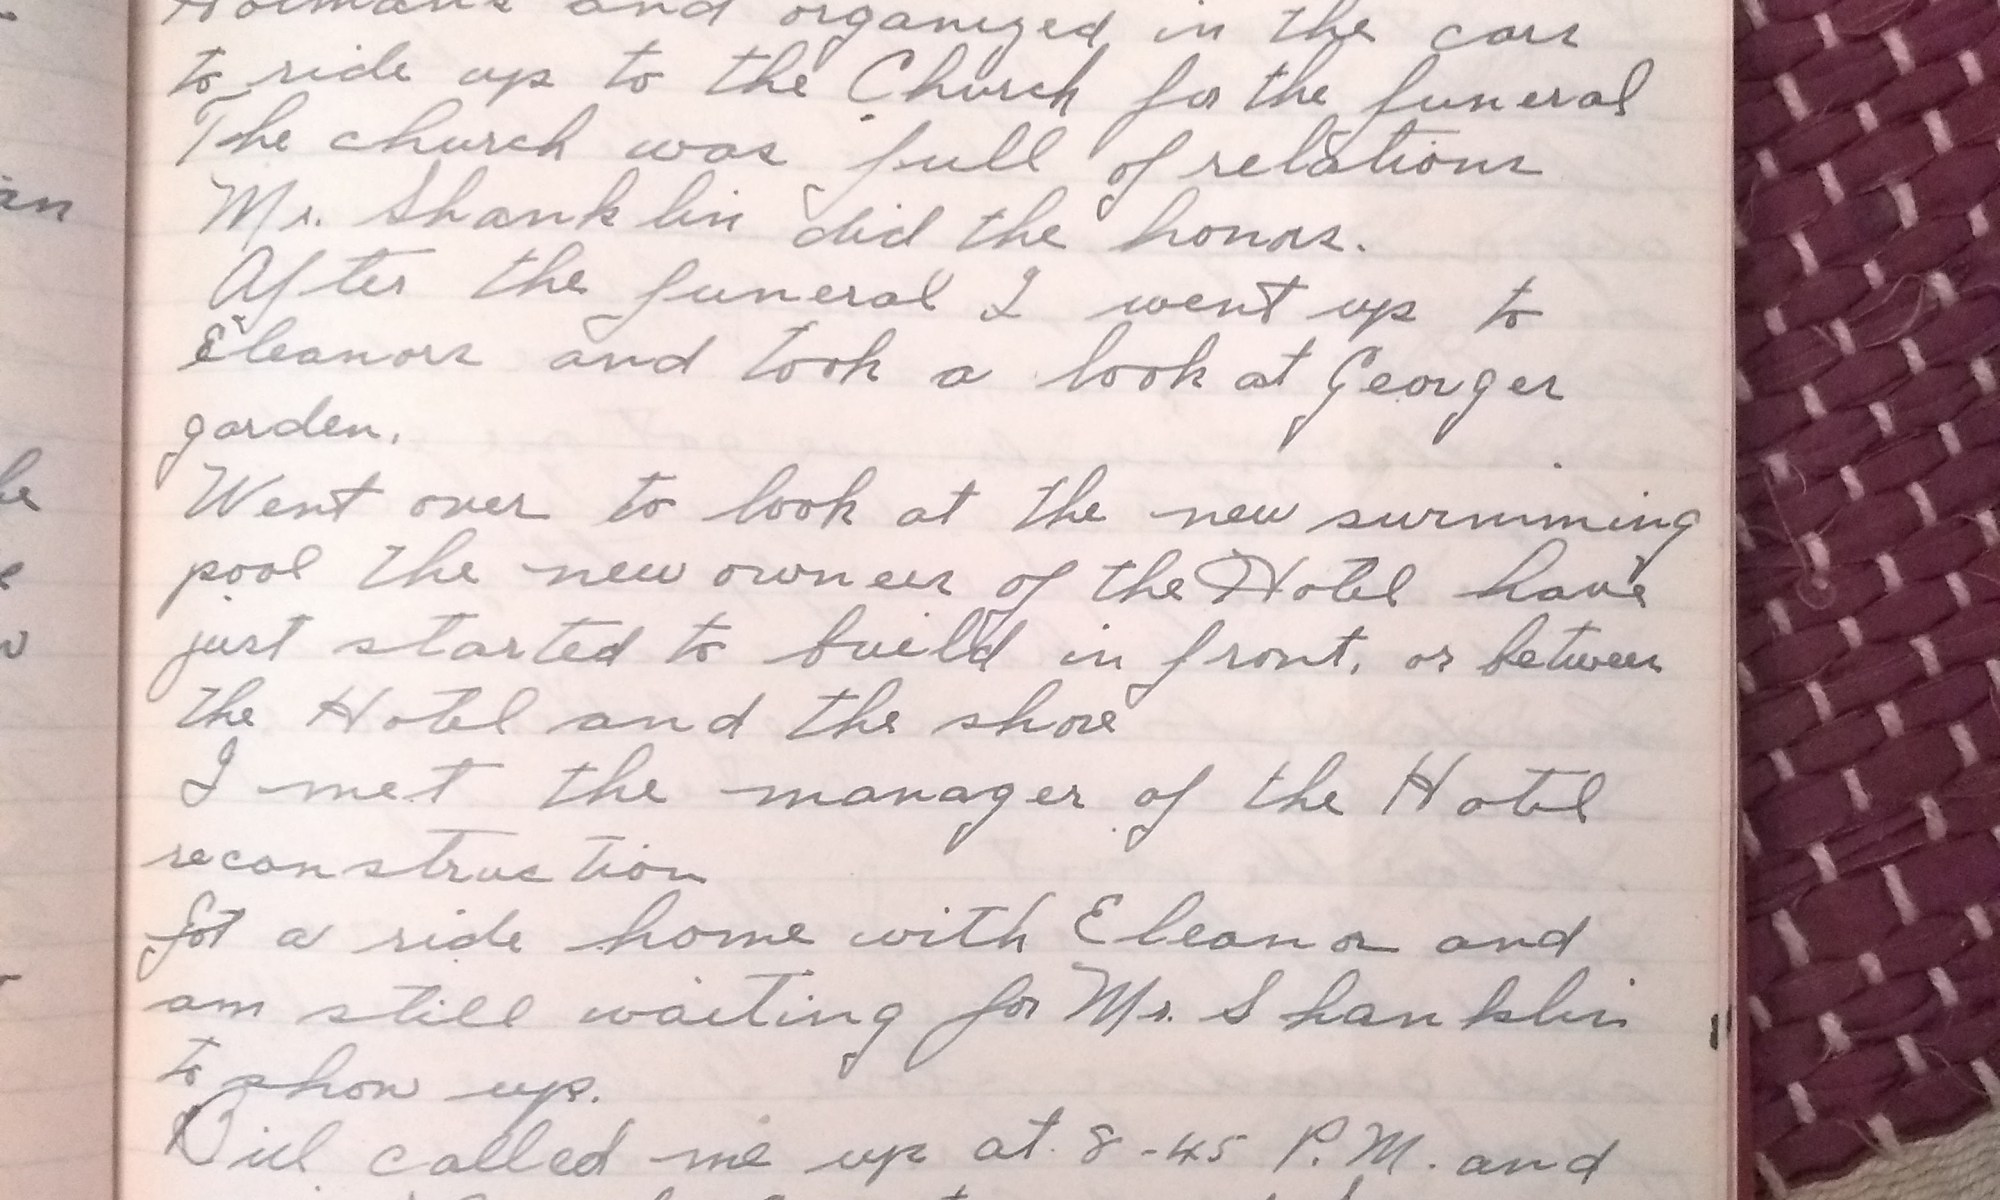 and organized in the cars
to ride up to the Church for the funeral
The church was full of relations
Mr. Shanklin did the honors.
After the funeral I went up to
Eleanors and took a look at Georges
garden.
Went over to look at the new swimming
pool the new owners of the Hotel have
just started to build in front, or between
the Hotel and the shore
I met the manager of the Hotel
reconstruction
Got a ride home with Eleanor and
am still waiting for Mr. Shanklin
to show up.
Bill called me up at 8-45 P.M. and